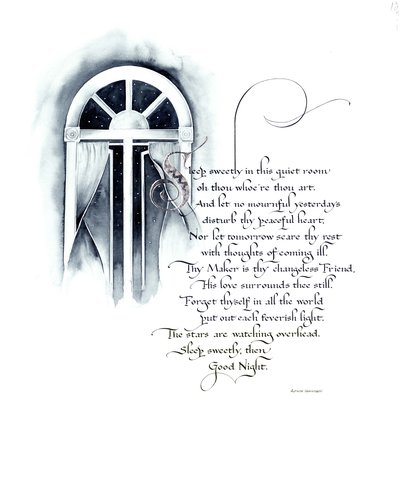 Sleep sweetly in this quiet room
oh thou whoe're thou art.
And let no mournful yesterdays
disturb thy peaceful heart;
Nor let tomorrow scare thy rest
with thoughts of coming ill.
Thy Maker is thy changeless Friend,
His love surrounds thee still.
Forget thyself in all the world
put out each feverish light.
The stars are watching overhead.
Sleep sweetly, then
Good Night.